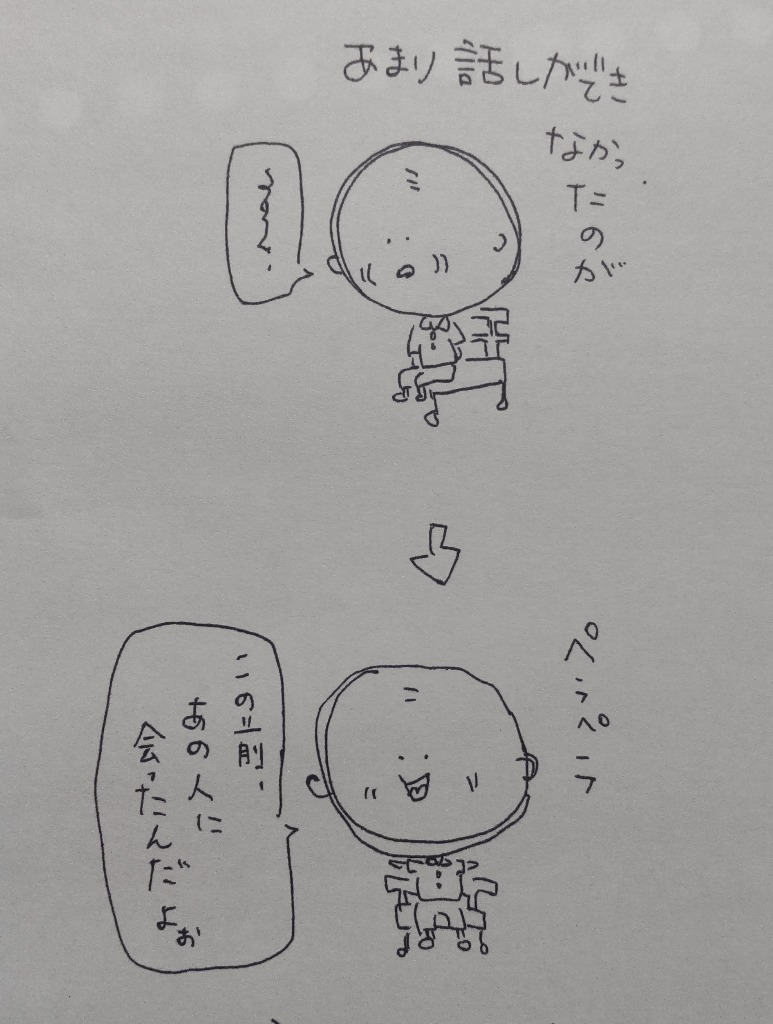 あまり話しができ
なかっ
たのが
ペラペラ
この前、
あの人に
会ったんだよぉ